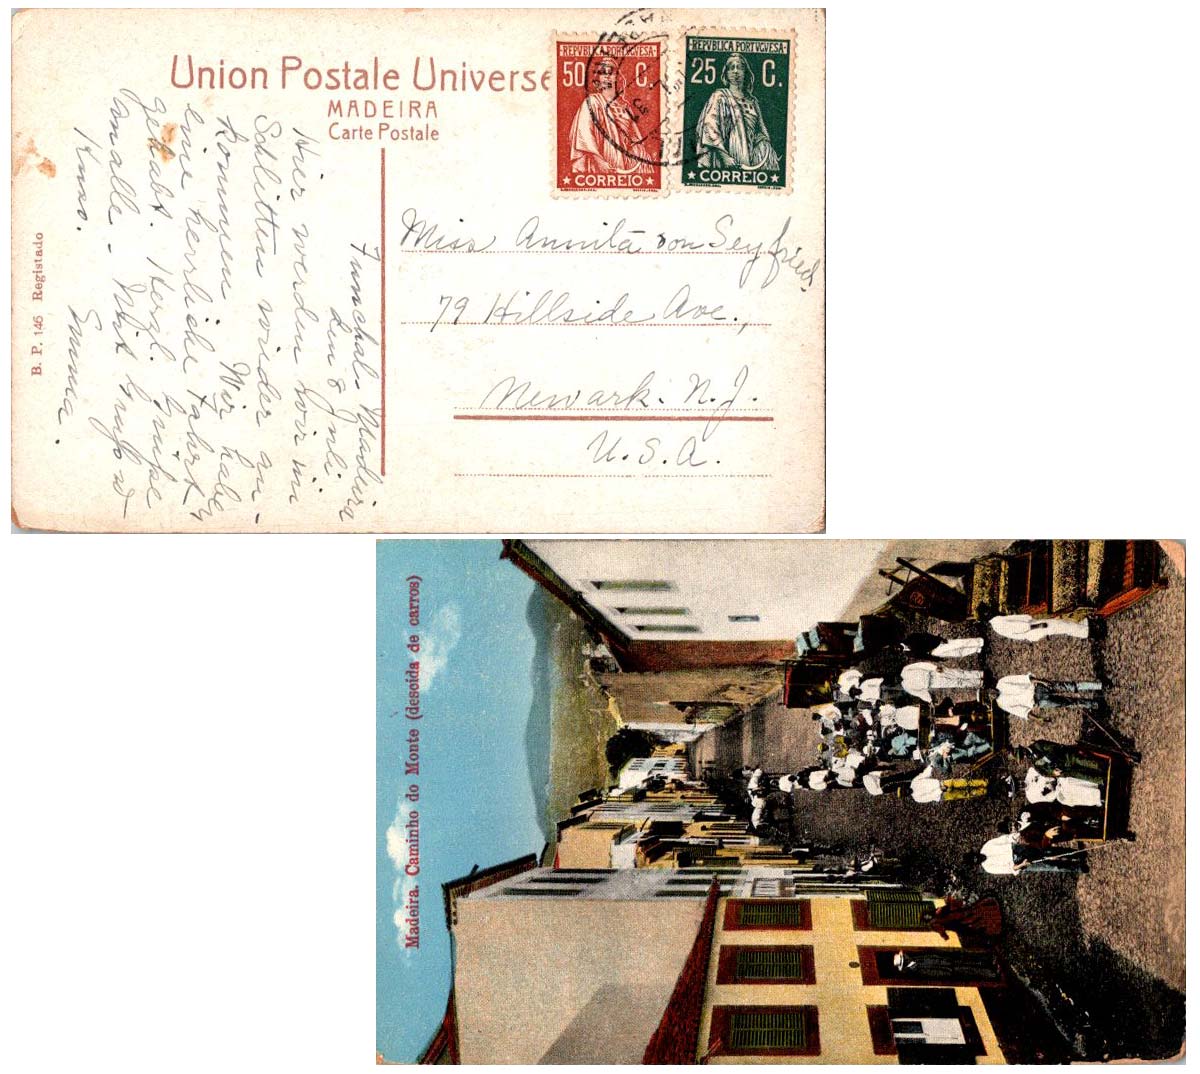 Union Postale Universe
MADEIRA
Carte Postale
REPVBLICA PORTVGVESA
50 C.
★ CORREIO ★
REPVBLICA PORTVGVESA
25 C.
★ CORREIO ★
Funchal - Madeira
den 8 Juli
Hier werden wir im
Schlitten wieder
kommen Wir habe
eine herrliche Fahrt
gehabt. Herzl. Grüße
an alle - Mit Gruß
Kuss.
Emma.
Miss Annita von Seyfried,
79 Hillside Ave.,
Newark. N.J.
U.S.A.
B. P. 146 Registado
Madeira. Caminho do Monte (descida de carros)